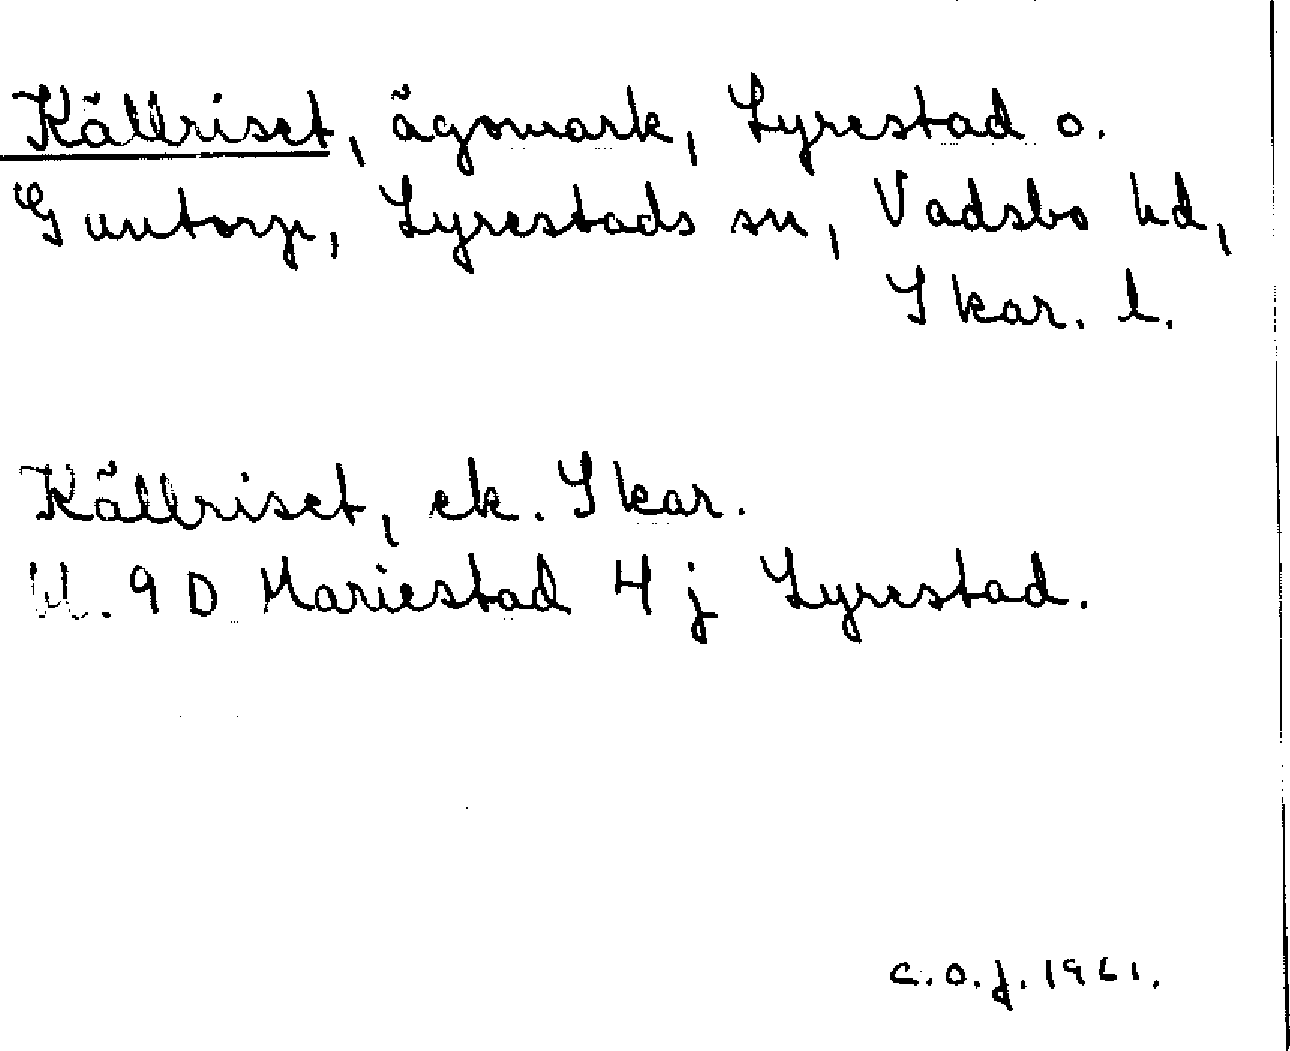 Källriset, ägomark, Lyrestad o.
Guntorp, Lyrestads sn, Vadsbo hd,
Skar. l.
Källriset, ek. Skar.
Bl. 9 D Mariestad 4 j Lyrestad.
C.O.J. 1961.